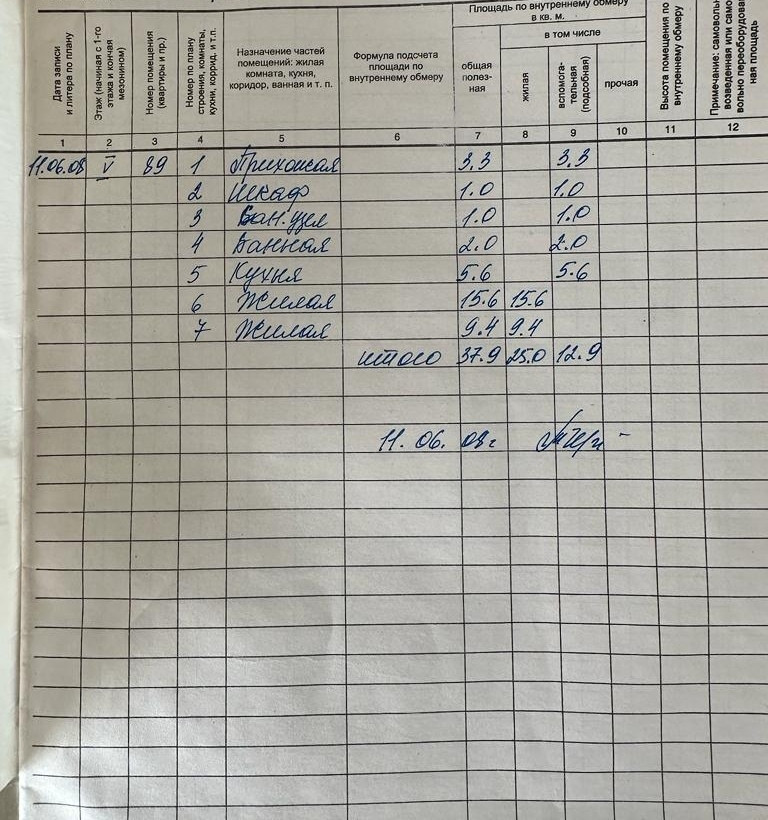 Площадь по внутреннему обмеру
в кв. м.
в том числе
Дата записи
и литера по плану
Этаж (начиная с 1-го
этажа и кончая
мезонином)
Номер помещения
(квартиры и пр.)
Номер по плану
строения, комнаты,
кухни, коррид. и т.п.
Назначение частей
помещений: жилая
комната, кухня,
коридор, ванная и т. п.
Формула подсчета
площади по
внутреннему обмеру
общая
полез-
ная
жилая
вспомога-
тельная
(подсобная)
прочая
Высота помещения по
внутреннему обмеру
Примечание: самоволь
возведенная или само
вольно переоборудова
ная площадь
1 2 3 4 5 6 7 8 9 10 11 12
11.06.08 V 89 1 Прихожая 3.3 3.3
2 Шкаф 1.0 1.0
3 Сан.узел 1.0 1.0
4 Ванная 2.0 2.0
5 Кухня 5.6 5.6
6 Жилая 15.6 15.6
7 Жилая 9.4 9.4
итого 37.9 25.0 12.9
11. 06. 08г